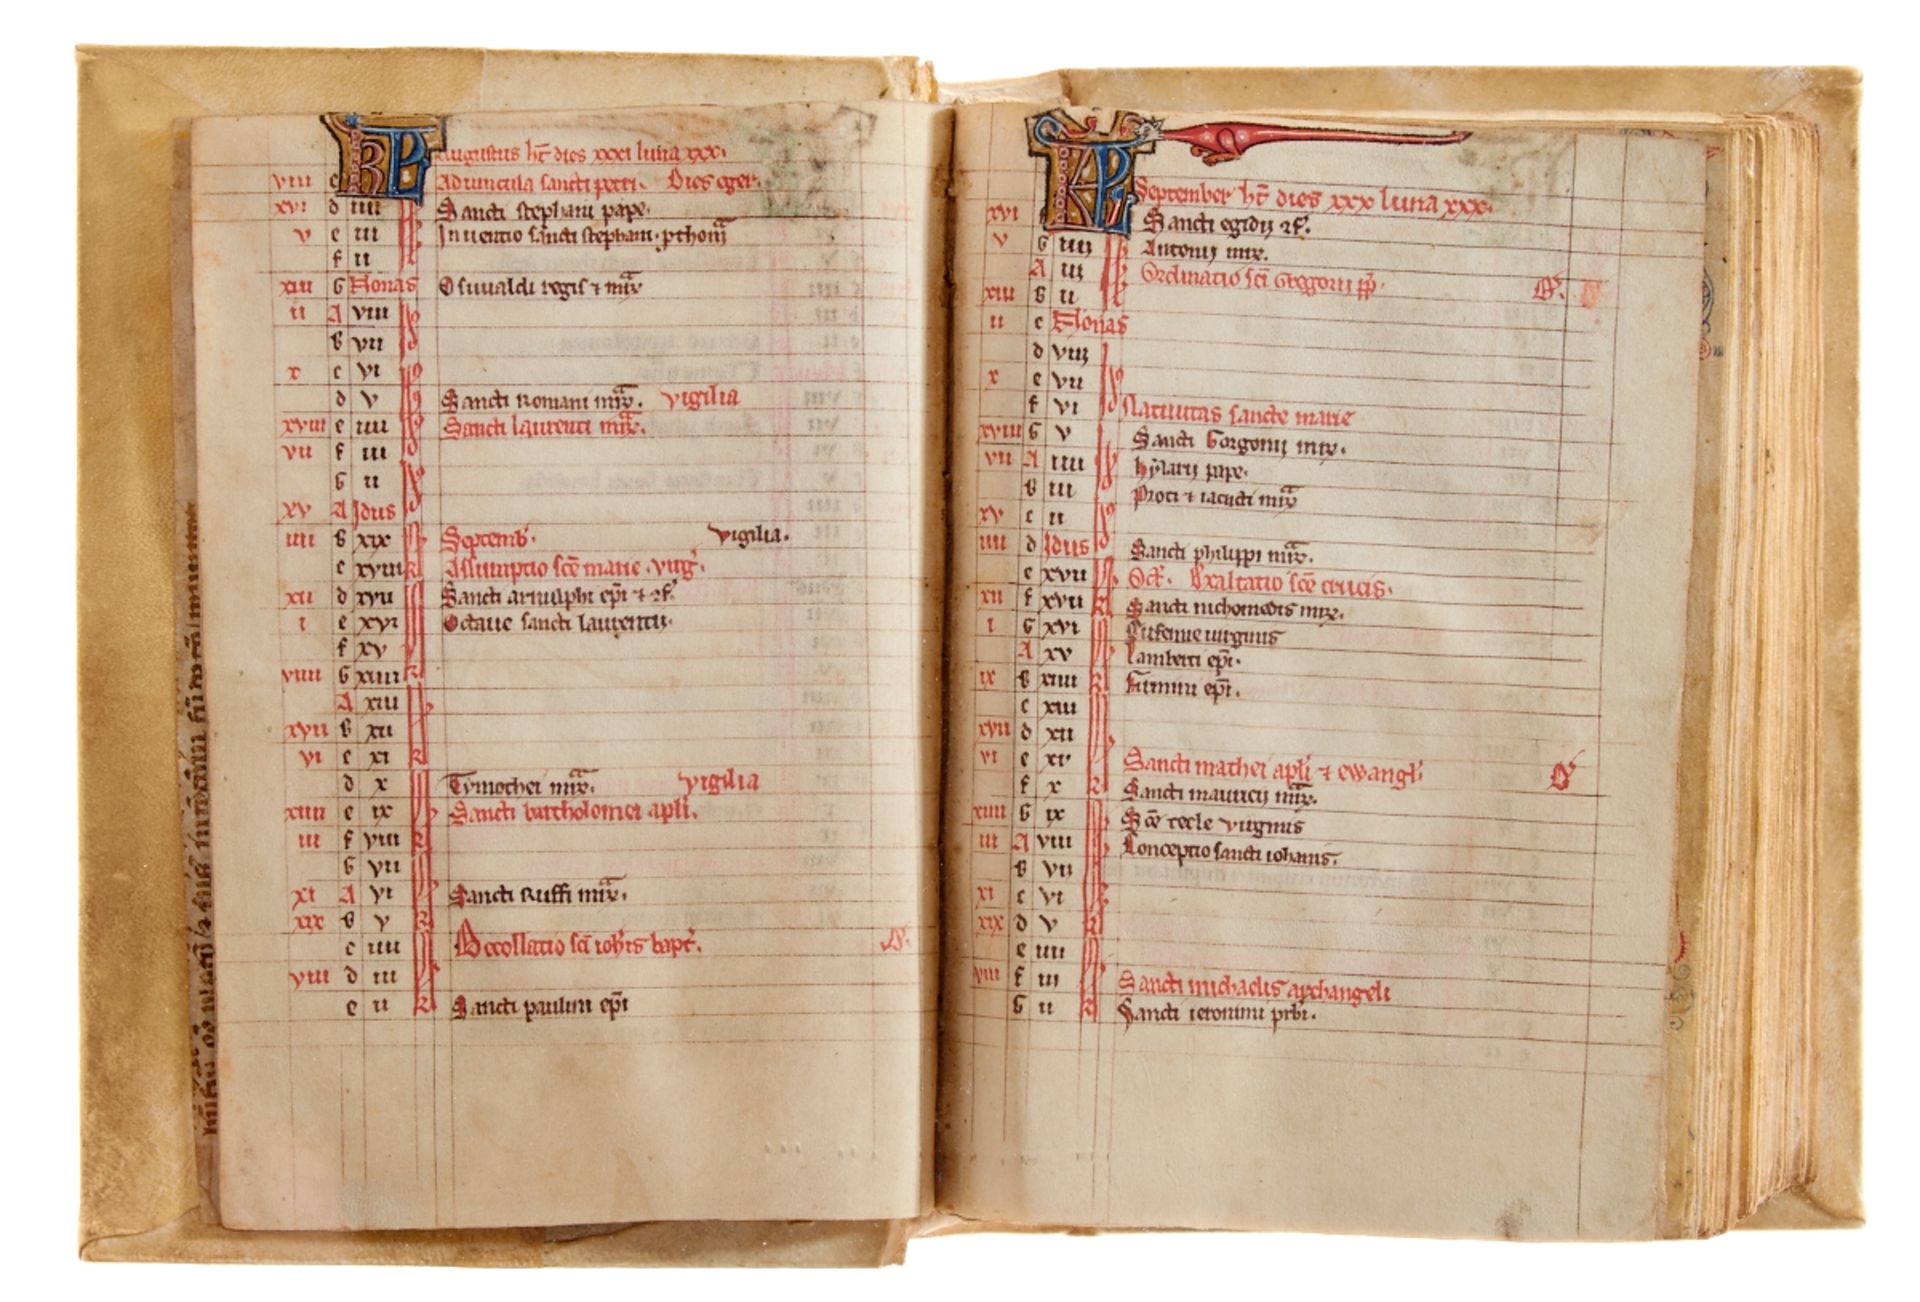 KL Augustus ht dies xxxi luna xxx.
viii c Aduincula sancti petri. Dies eger.
xvi d iiii Sancti stephani pape.
v e iii Inuentio sancti stephani. pthom
f ii
xiii G Nonas Osuualdi regis & mr
ii A viii
b vii
x c vi
d v Sancti Romani mr. vigilia
xviii e iiii Sancti laurenti mr.
vii f iii
G ii
xv A Idus
iiii b xix Septemb. vigilia.
c xviii Assumptio sce marie. virg.
xii d xvii Sancti arnulphi epi & cf.
i e xvi Octaue sancti laurentii.
f xv
viiii G xiiii
A xiii
xvii b xii
vi c xi
d x Tymothei mr. vigilia
xiiii e ix Sancti bartholomei apli.
iii f viii
G vii
xi A vi Sancti Ruffi mr.
xix b v
c iiii Decollatio sci iohis bapt.
viii d iii
e ii Sancti paulini epi
KL September ht dies xxx luna xxx.
xvi Sancti egidij cf.
v G iiij Antonij mr.
A iij Ordinatio sci Gregorii pp.
xiii b ii
ii c Nonas
d viij
x e vii
f vi Natiuitas sancte marie
xviii G v Sancti Gorgonij mr.
vii A iiii hylarij pape.
b iii Proti & iacincti mr
xv c ii
iiii d Idus Sancti philippi mr.
e xvii Oct. Exaltatio sce crucis.
xii f xvii Sancti nichomedis mr.
i G xvi Eufemie uirginis
A xv Lamberti epi.
ix b xiiii firmini epi.
c xiii
xvii d xii
vi e xi Sancti mathei apli & ewangl.
f x Sancti mauricij mr.
xiiii G ix Sce tecle virginis
iii A viii Conceptio sancti iohanis.
b vii
xi c vi
xix d v
e iiii
viii f iii Sancti michaelis archangeli
G ii Sancti ieronimi prbi.